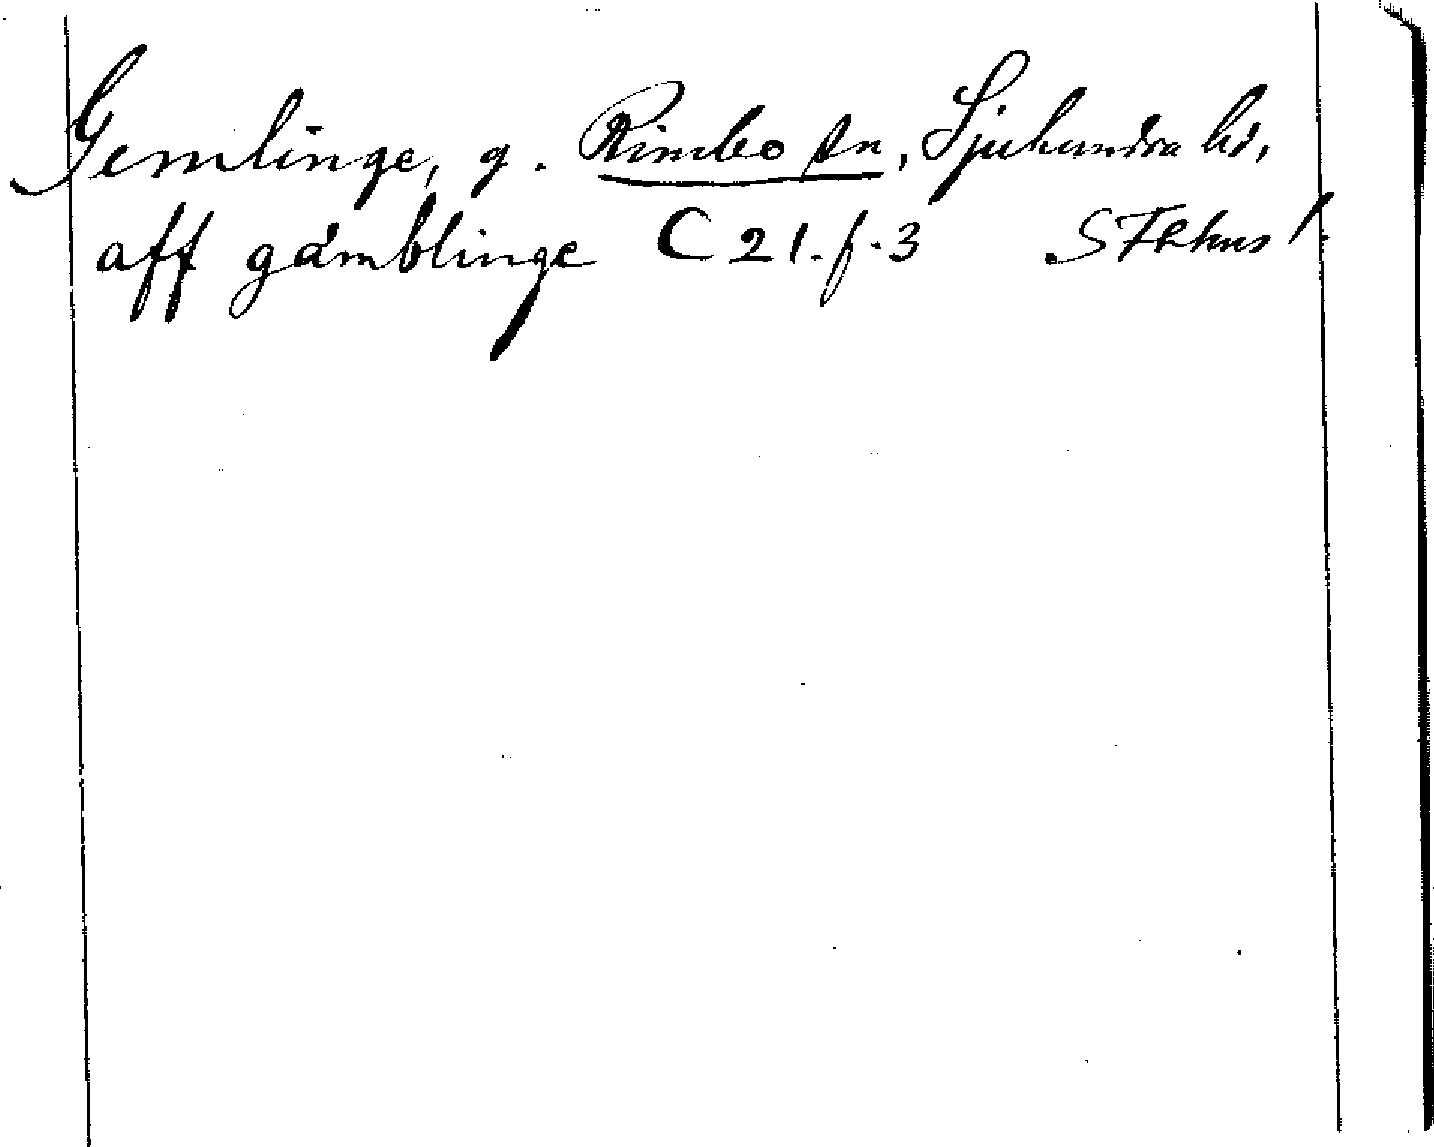 Gemlinge, g. Rimbo sn, Sjuhundra hd,
aff gämblinge C 21. f. 3